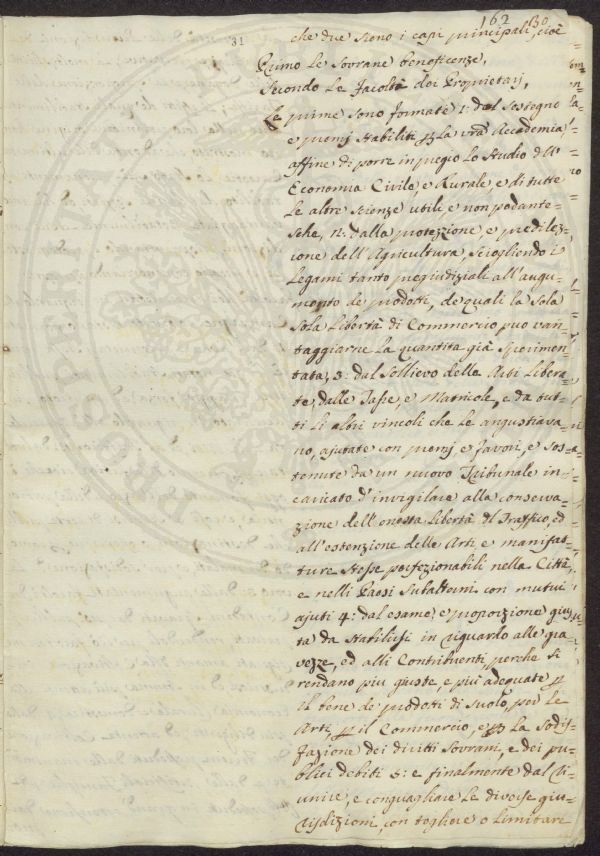 162 130
31
che due sono i capi principali, cioè
Primo Le Sovrane beneficenze,
Secondo Le Facoltà dei Proprietarj,
Le prime sono formate 1: dal Sostegno
e premj stabiliti p la vra Accademia
affine di porre in pregio Lo Studio dell'
Economia Civile, e Rurale, e di tutte
Le altre Scienze utili, e non pedante-
sche, 2: dalla protezzione e predilez-
zione dell'Agricultura, Sciogliendo i
Legami tanto pregiudiziali all'augu-
mento de' prodotti, de quali la Sola
Sola Libertà di Commercio può van-
taggiarne La quantità già Sperimen-
tata, 3: dal Sollievo delle Arti Libera-
te, dalle Tasse, e Matricole, e da tut-
ti Li altri vincoli che Le angustiava-
no, ajutate con premj e favori, e sos-
tenute da un nuovo Tribunale in-
caricato d'invigilare alla conserva-
zione dell'onesta Libertà del Traffico, ed
all'estenzione delle Arti e manifat-
ture stesse perfezionabili nella Città,
e nelli Paesi Subalterni con mutui
ajuti 4: dal esame, e proporzione gius-
ta da stabilirsi in riguardo alle gra-
vezze, ed alli Contribuenti, perche si
rendano più giuste, e più adequate p
il bene de' prodotti di Suolo, per Le
Arti, p il Commercio, e p La Sodis-
fazione dei diritti Sovrani, e dei pu-
blici debiti 5: e finalmente dal riu-
nire, e conguagliare Le diverse giu-
risdizioni, con togliere o Limitare